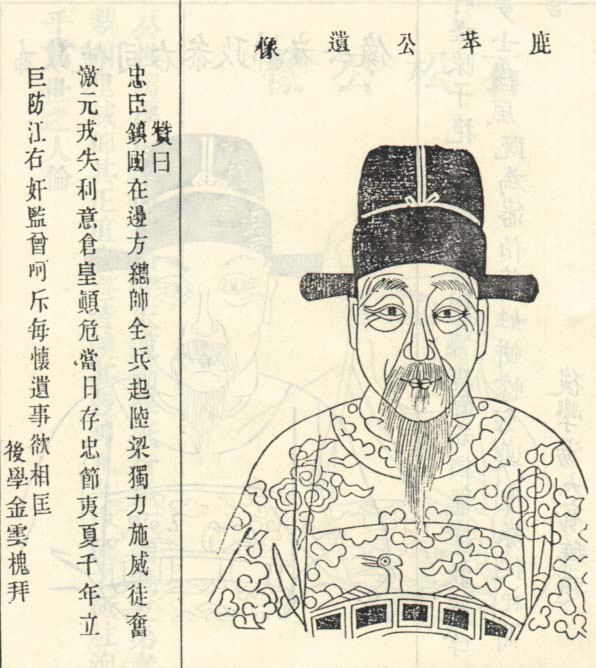 鹿苹公遺像
贊曰
忠臣鎮國在邊方總帥全兵起陸梁獨力施威徒奮
激元戎失利意倉皇顛危當日存忠節夷夏千年立
巨防江右奸監曾呵斥每懷遺事欲相匡
後學金雲槐拜